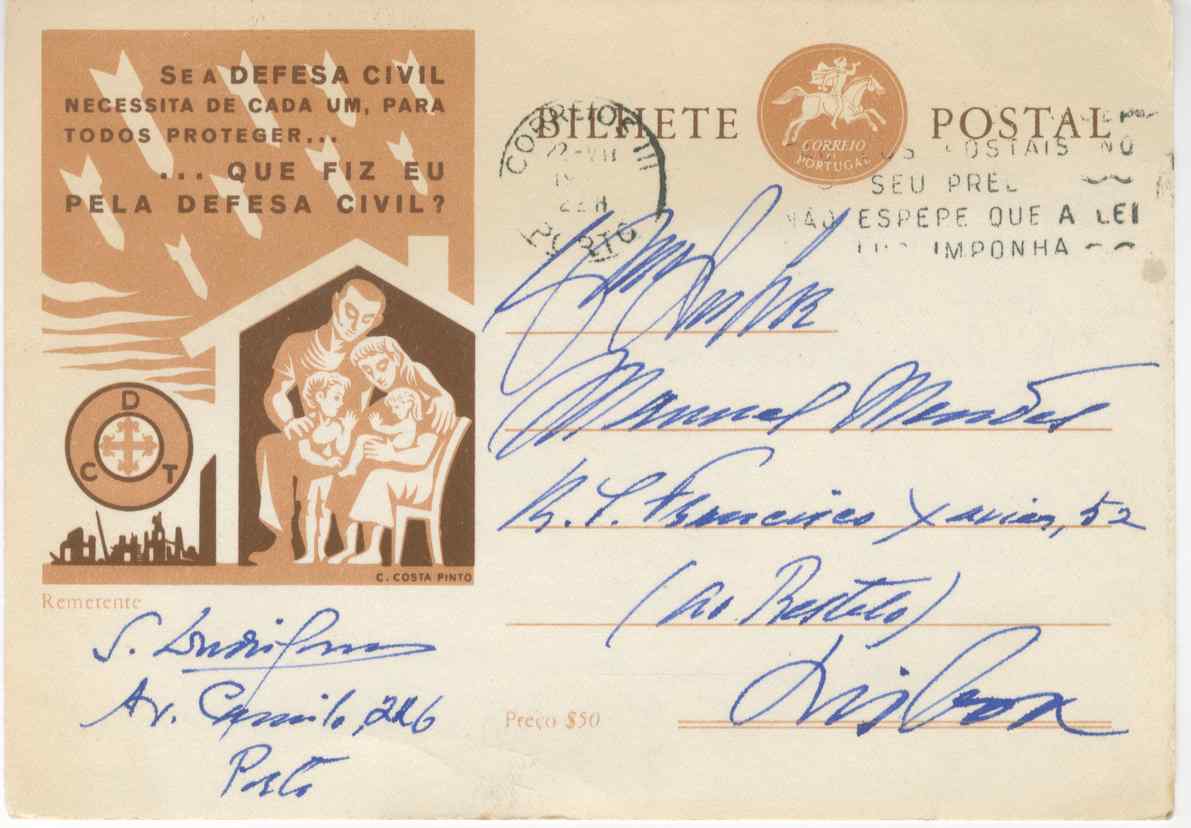 SE A DEFESA CIVIL
NECESSITA DE CADA UM, PARA
TODOS PROTEGER...
... QUE FIZ EU
PELA DEFESA CIVIL?
D
C T
C. COSTA PINTO
BILHETE POSTAL
CORREIO
PORTUGAL
CORREIOS
22H
PORTO
OSTAIS NO
SEU PRE
NÃO ESPEPE QUE A LEI
IMPONHA
Manuel Mendes
R. S. Francisco Xavier, 52
(ao Restelo)
Lisboa
Remetente
S.
Av. Camilo, 226
Porto
Preço $50